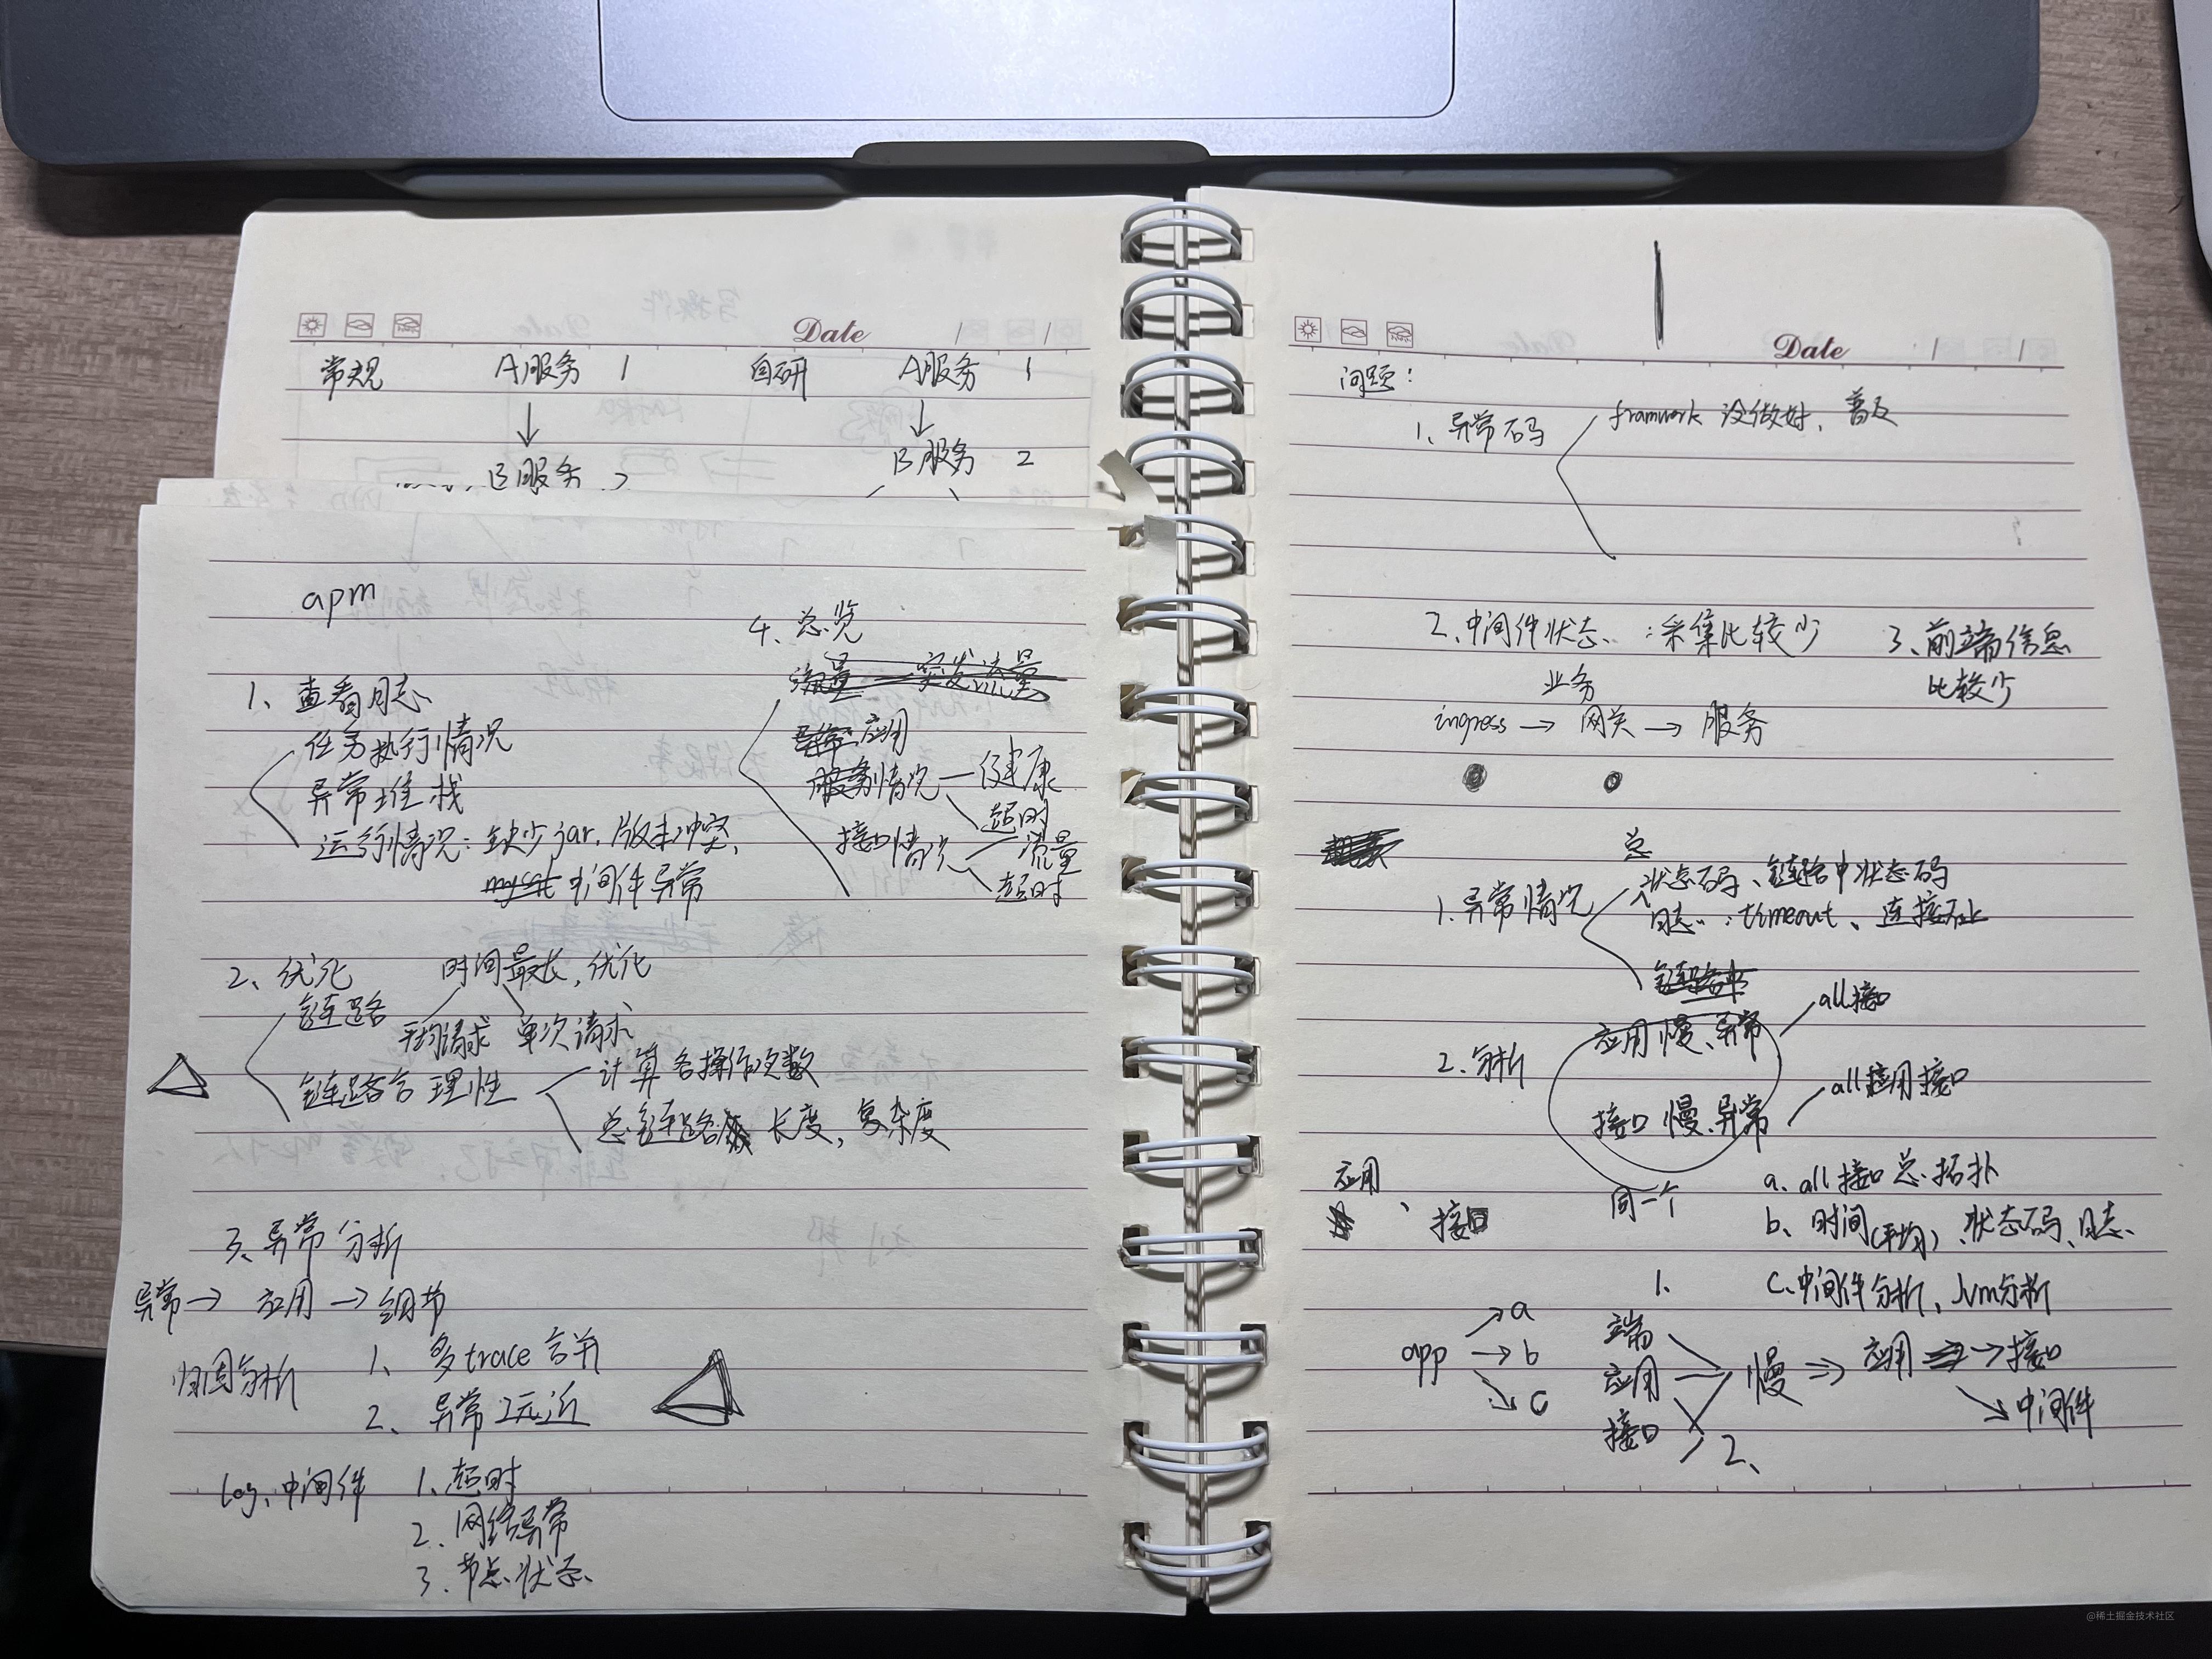 Date / /
常规 A服务 1 自研 A服务 1
↓ ↓
B服务 2 B服务 2
apm
1、查看日志
任务执行情况
异常堆栈
运行情况：缺少jar、版本冲突、
mysql 中间件异常
2、优化 时间最长，优化
链路
平均请求 单次请求
链路合理性
计算各操作次数
总链路 长度，复杂度
3、异常分析
异常→ 应用→细节
归因分析
1、多trace合并
2、异常 冗近
log、中间件
1、超时
2、网络异常
3、节点状态
4、总览
流量 — 突发流量
异常 应用
服务情况 — 健康
超时
接口情况
流量
超时
Date / /
问题：
1、异常码
framwork 没做好、普及
2、中间件状态：采集比较少
3、前端信息
比较少
业务
ingress → 网关 → 服务
1、异常情况
总
状态码、链路中状态码
日志：timeout、连接不上
链路中
2、分析
应用慢、异常
all接口
接口 慢、异常
all应用接口
同一个
应用、接口
a、all接口总拓扑
b、时间(平均)、状态码、日志、
c、中间件分析、Jvm分析
app →a
→b
→c
1、
端
应用
接口
慢 ⇒ 应用 → 接口
中间件
2、
@稀土掘金技术社区